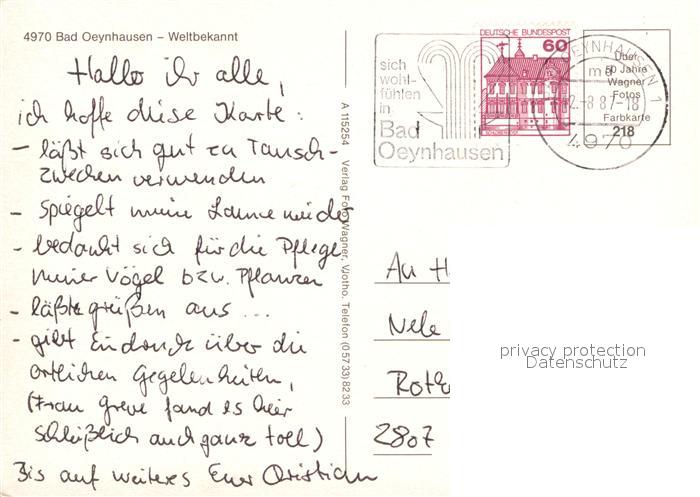 4970 Bad Oeynhausen – Weltbekannt
Hallo ihr alle,
ich hoffe diese Karte:
- läßt sich gut zu Tausch-
zwecken verwenden
- spiegelt meine Laune wider
- bedankt sich für die Pflege
meiner Vögel bzw. Pflanzen
- läßt grüßen aus ...
- gibt Eindruck über die
örtlichen Gegebenheiten,
(Frau Greve fand es hier
schließlich auch ganz toll)
Bis auf weiteres Euer Christian
A 115254 Verlag Foto Wagner, Vlotho, Telefon (05733) 8233
sich
wohl-
fühlen
in
Bad
Oeynhausen
DEUTSCHE BUNDESPOST
60
OEYNHAUSEN 1
ma
2.-8.87-18
4970
Über
50 Jahre
Wagner
Fotos
Farbkarte
218
An H
Nele
Rothe
2807
privacy protection
Datenschutz